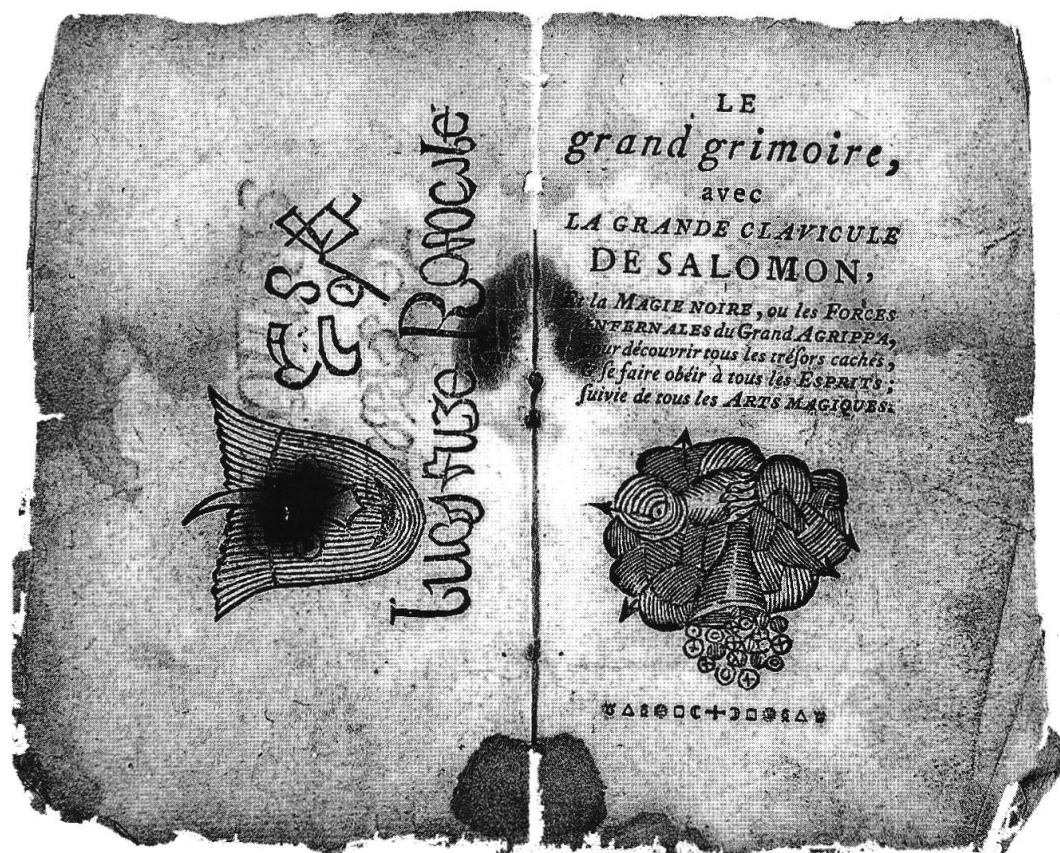 Lucifuge Rofocale
LE
grand grimoire,
avec
LA GRANDE CLAVICULE
DE SALOMON,
Et la MAGIE NOIRE, ou les FORCES
INFERNALES du Grand AGRIPPA,
pour découvrir tous les tréſors cachés,
ſe faire obéir à tous les ESPRITS ;
ſuivie de tous les ARTS MAGIQUES.